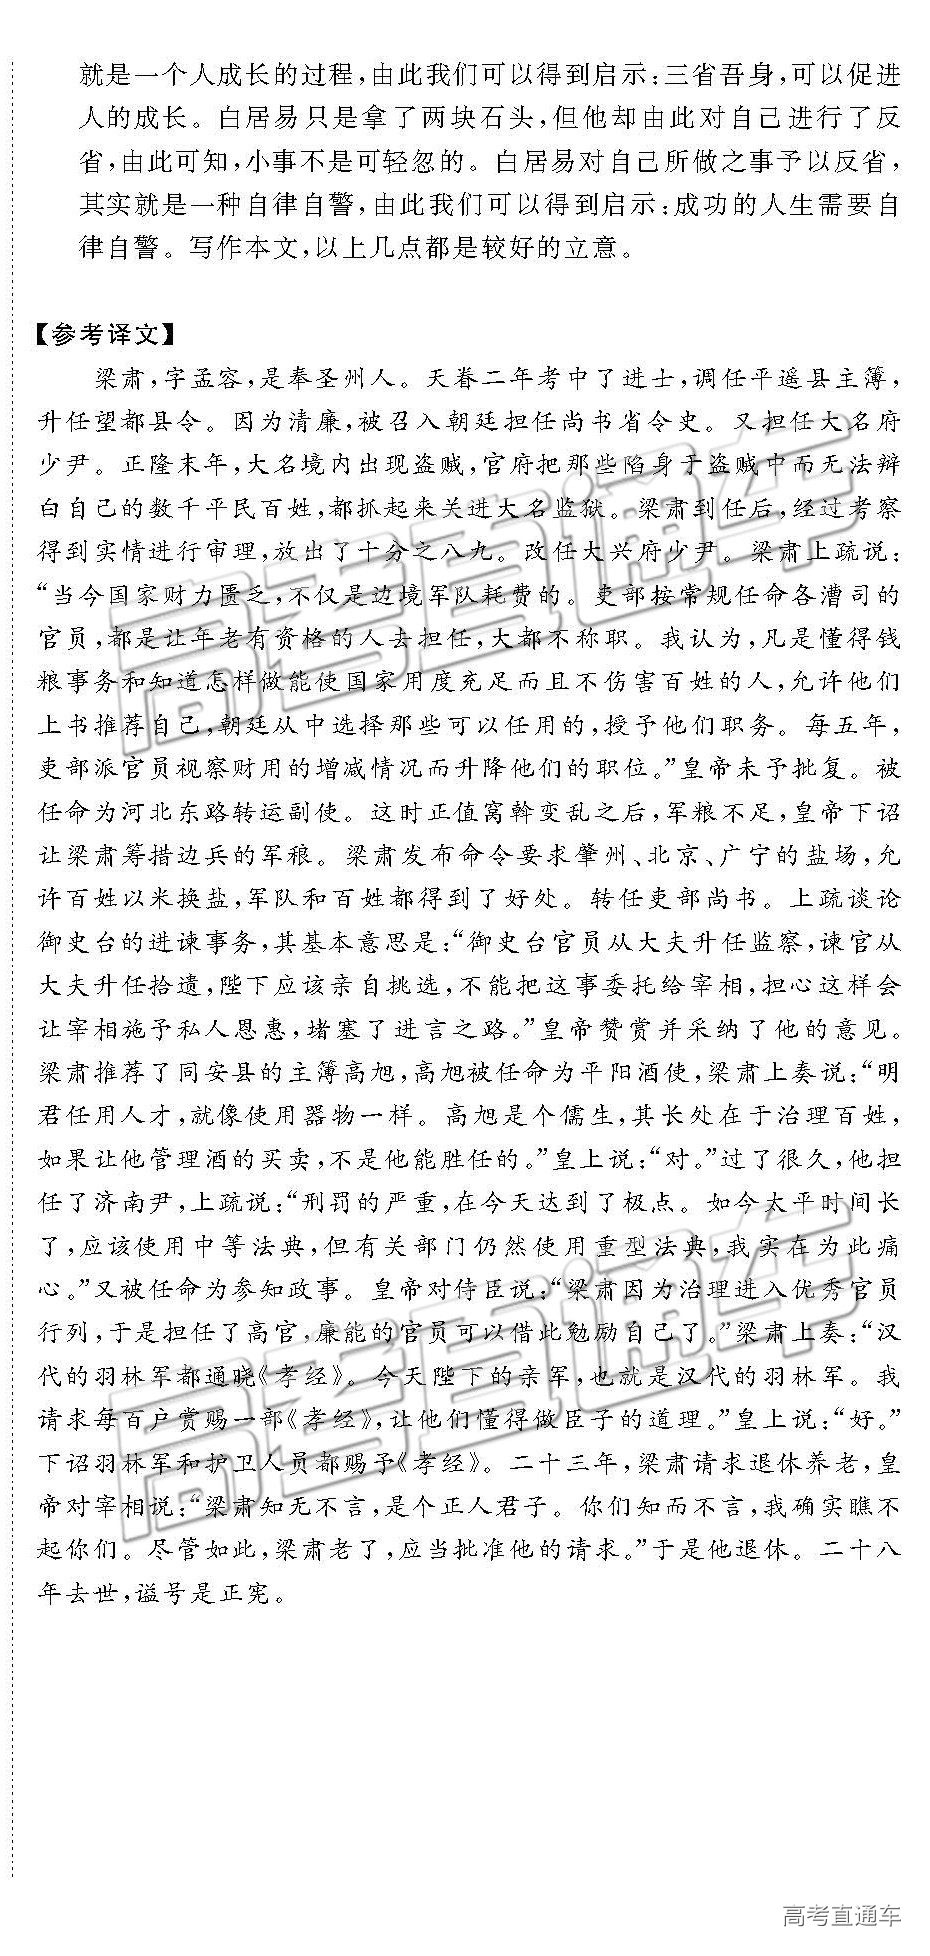 就是一个人成长的过程,由此我们可以得到启示:三省吾身,可以促进
人的成长。白居易只是拿了两块石头,但他却由此对自己进行了反
省,由此可知,小事不是可轻忽的。白居易对自己所做之事予以反省,
其实就是一种自律自警,由此我们可以得到启示:成功的人生需要自
律自警。写作本文,以上几点都是较好的立意。
【参考译文】
梁肃,字孟容,是奉圣州人。天眷二年考中了进士,调任平遥县主簿,
升任望都县令。因为清廉,被召入朝廷担任尚书省令史。又担任大名府
少尹。正隆末年,大名境内出现盗贼,官府把那些陷身于盗贼中而无法辩
白自己的数千平民百姓,都抓起来关进大名监狱。梁肃到任后,经过考察
得到实情进行审理,放出了十分之八九。改任大兴府少尹。梁肃上疏说:
“当今国家财力匮乏,不仅是边境军队耗费的。吏部按常规任命各漕司的
官员,都是让年老有资格的人去担任,大都不称职。我认为,凡是懂得钱
粮事务和知道怎样做能使国家用度充足而且不伤害百姓的人,允许他们
上书推荐自己,朝廷从中选择那些可以任用的,授予他们职务。每五年,
吏部派官员视察财用的增减情况而升降他们的职位。”皇帝未予批复。被
任命为河北东路转运副使。这时正值窝斡变乱之后,军粮不足,皇帝下诏
让梁肃筹措边兵的军粮。梁肃发布命令要求肇州、北京、广宁的盐场,允
许百姓以米换盐,军队和百姓都得到了好处。转任吏部尚书。上疏谈论
御史台的进谏事务,其基本意思是:“御史台官员从大夫升任监察,谏官从
大夫升任拾遗,陛下应该亲自挑选,不能把这事委托给宰相,担心这样会
让宰相施予私人恩惠,堵塞了进言之路。”皇帝赞赏并采纳了他的意见。
梁肃推荐了同安县的主簿高旭,高旭被任命为平阳酒使,梁肃上奏说:“明
君任用人才,就像使用器物一样。高旭是个儒生,其长处在于治理百姓,
如果让他管理酒的买卖,不是他能胜任的。”皇上说:“对。”过了很久,他担
任了济南尹,上疏说:“刑罚的严重,在今天达到了极点。如今太平时间长
了,应该使用中等法典,但有关部门仍然使用重型法典,我实在为此痛
心。”又被任命为参知政事。皇帝对侍臣说:“梁肃因为治理进入优秀官员
行列,于是担任了高官,廉能的官员可以借此勉励自己了。”梁肃上奏:“汉
代的羽林军都通晓《孝经》。今天陛下的亲军,也就是汉代的羽林军。我
请求每百户赏赐一部《孝经》,让他们懂得做臣子的道理。”皇上说:“好。”
下诏羽林军和护卫人员都赐予《孝经》。二十三年,梁肃请求退休养老,皇
帝对宰相说:“梁肃知无不言,是个正人君子。你们知而不言,我确实瞧不
起你们。尽管如此,梁肃老了,应当批准他的请求。”于是他退休。二十八
年去世,谥号是正宪。
高考直通车
高考直通车
高考直通车